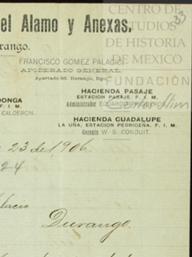 CENTRO DE
ESTUDIOS
DE HISTORIA
DE MEXICO
FUNDACIÓN
el Alamo y Anexas,
urango.
FRANCISCO GOMEZ PALACIO
APODERADO GENERAL
HACIENDA PASAJE
ESTACION PASAJE, F. I. M.
Administrador
DONGA
F. I. M.
CALDERON.
HACIENDA GUADALUPE
LA UÑA, ESTACION PEDRICEÑA, F. I. M.
Gerente W. S. CONDUIT.
23 de 1906.
24
Durango.